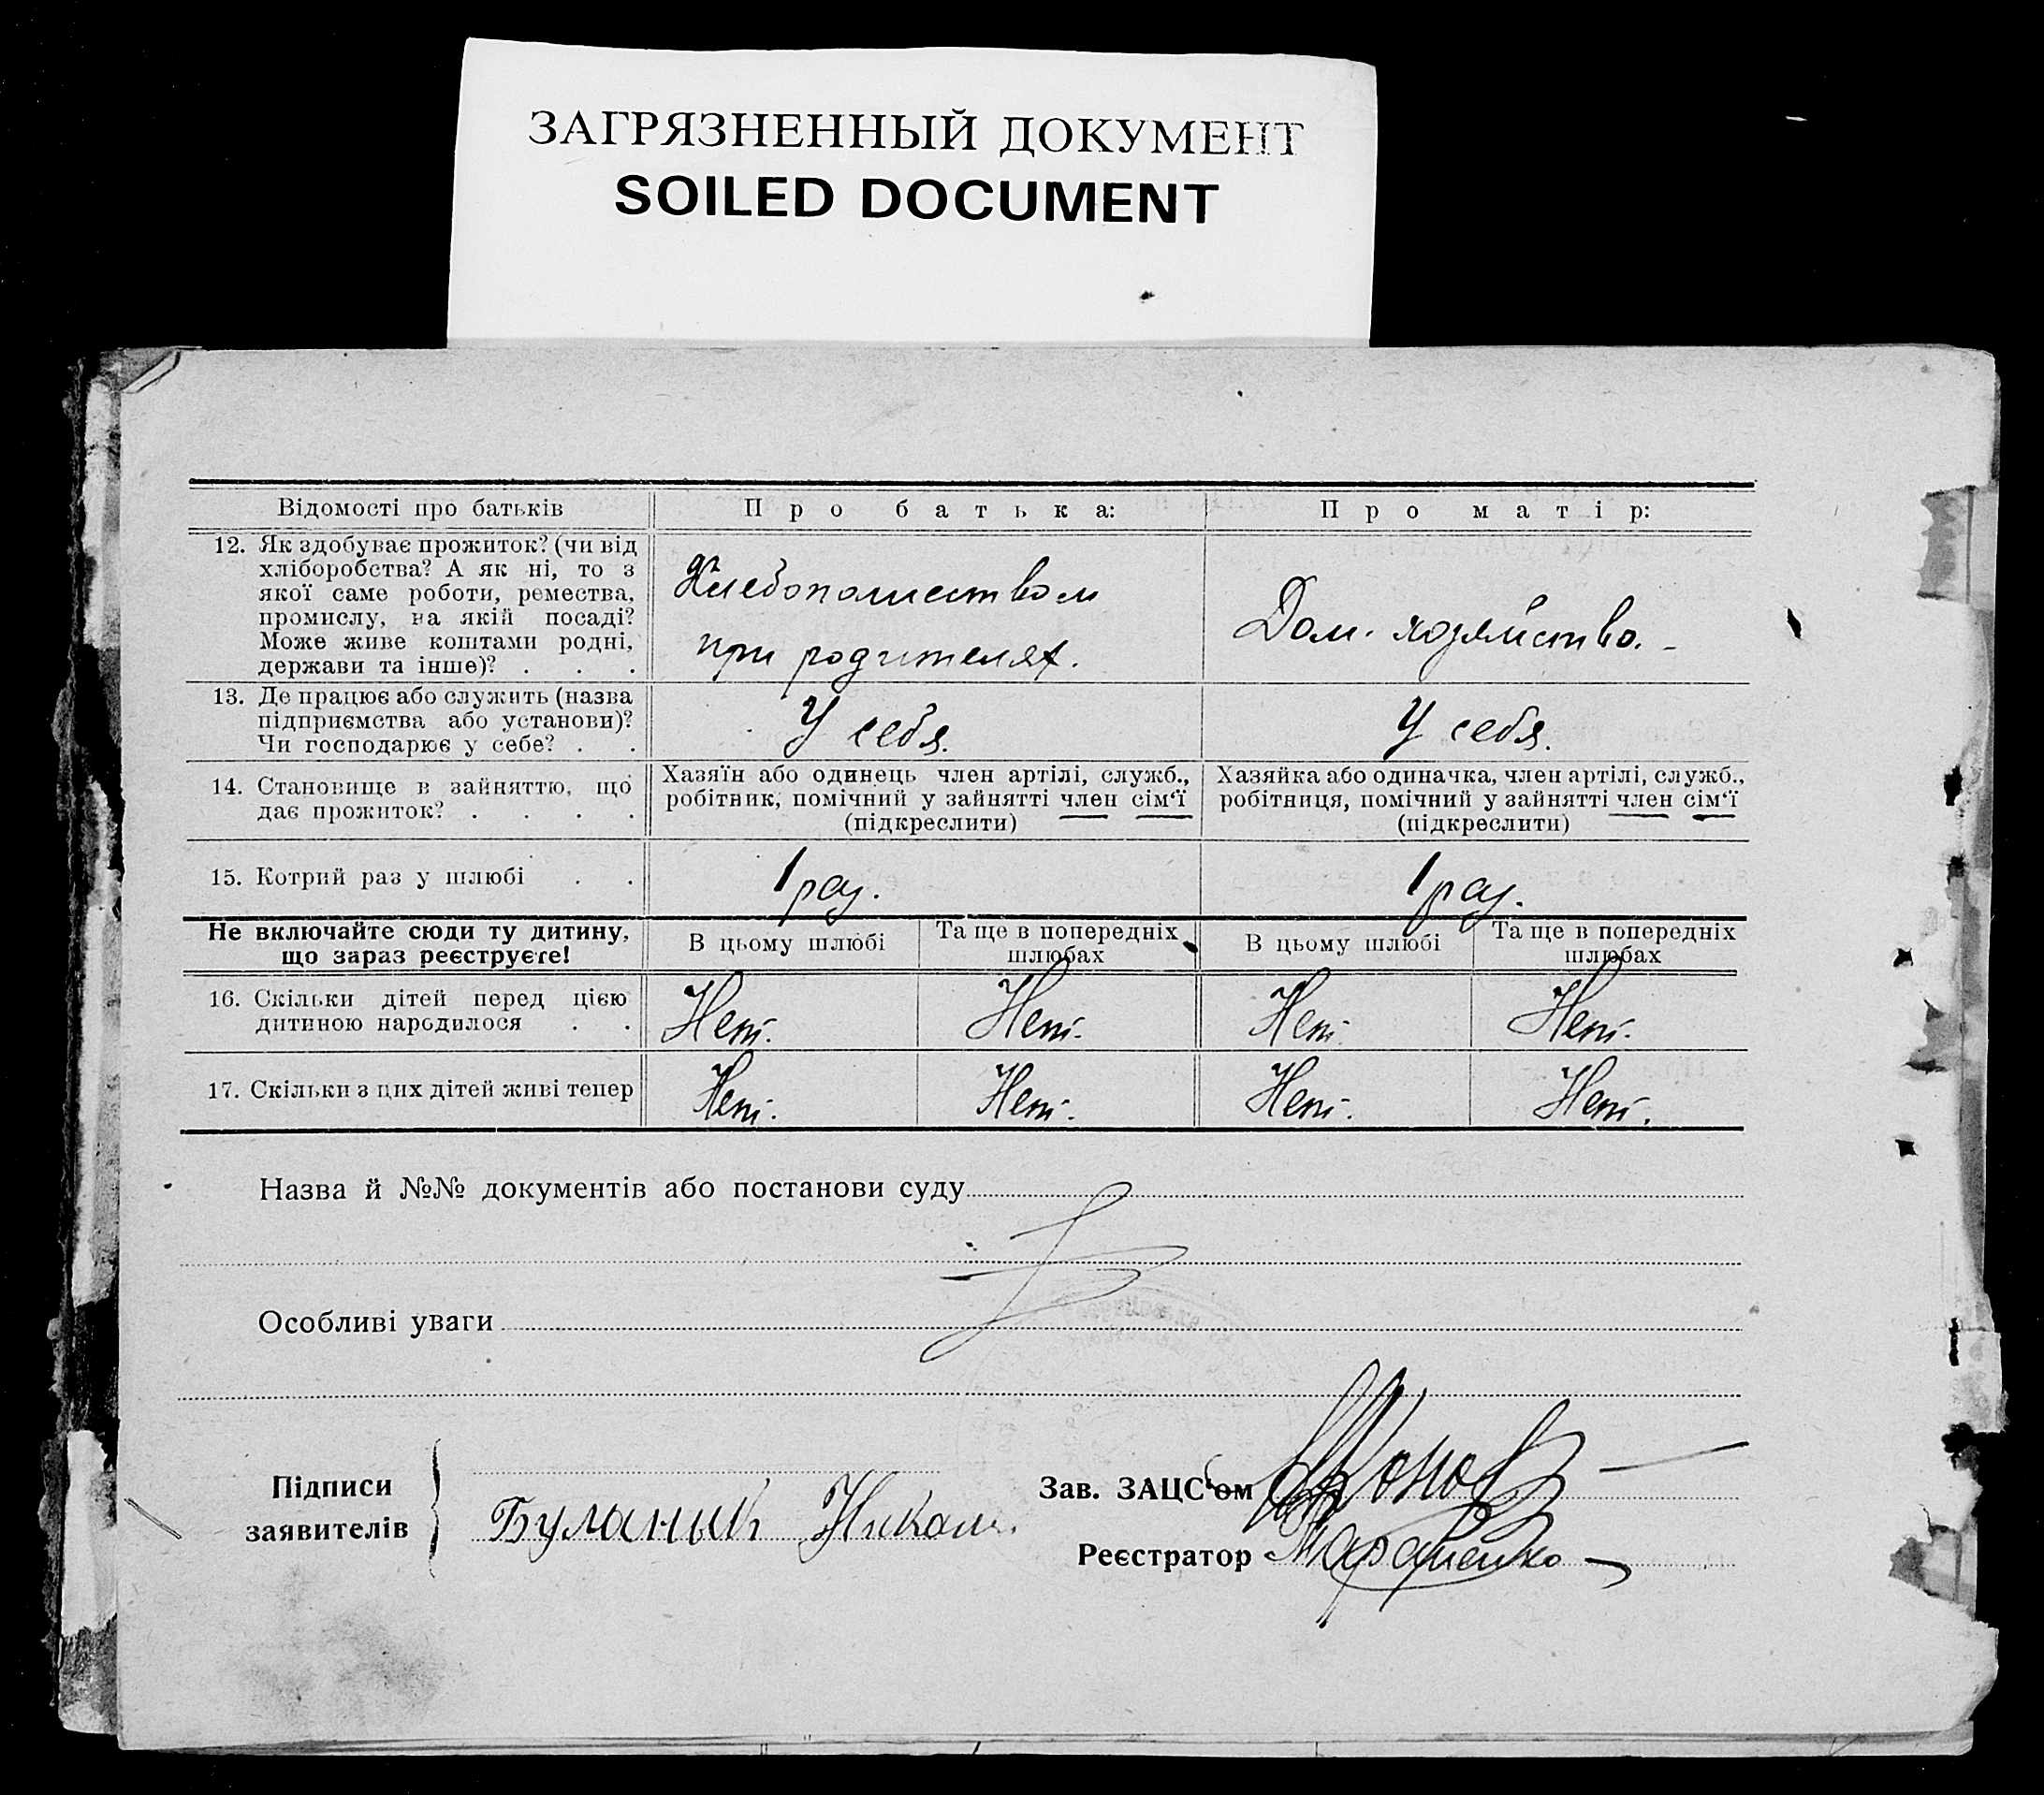 ЗАГРЯЗНЕННЫЙ ДОКУМЕНТ
SOILED DOCUMENT
Відомості про батьків
Про батька:
Про матір:
12. Як здобуває прожиток? (чи від
хліборобства? А як ні, то з
якої саме роботи, ремества,
промислу, на якій посаді?
Може живе коштами родні,
держави та інше)? . . .
Хлебопашеством
при родителях.
Дом. хозяйство. -
13. Де працює або служить (назва
підприємства або установи)?
Чи господарює у себе? . .
У себя.
У себя.
14. Становище в зайняттю, що
дає прожиток? . . . .
Хазяїн або одинець член артілі, служб.,
робітник, помічний у зайнятті член сім‘ї
(підкреслити)
Хазяйка або одиначка, член артілі, служб.,
робітниця, помічний у зайнятті член сім‘ї
(підкреслити)
15. Котрий раз у шлюбі . .
1 раз.
1 раз.
Не включайте сюди ту дитину,
що зараз реєструєте!
В цьому шлюбі
Та ще в попередніх
шлюбах
В цьому шлюбі
Та ще в попередніх
шлюбах
16. Скільки дітей перед цією
дитиною народилося . .
Нет.
Нет.
Нет.
Нет.
17. Скільки з цих дітей живі тепер
Нет.
Нет.
Нет.
Нет.
Назва й №№ документів або постанови суду
Особливі уваги
Підписи
заявителів
Буланый
Зав. ЗАЦС‘ом
Реєстратор